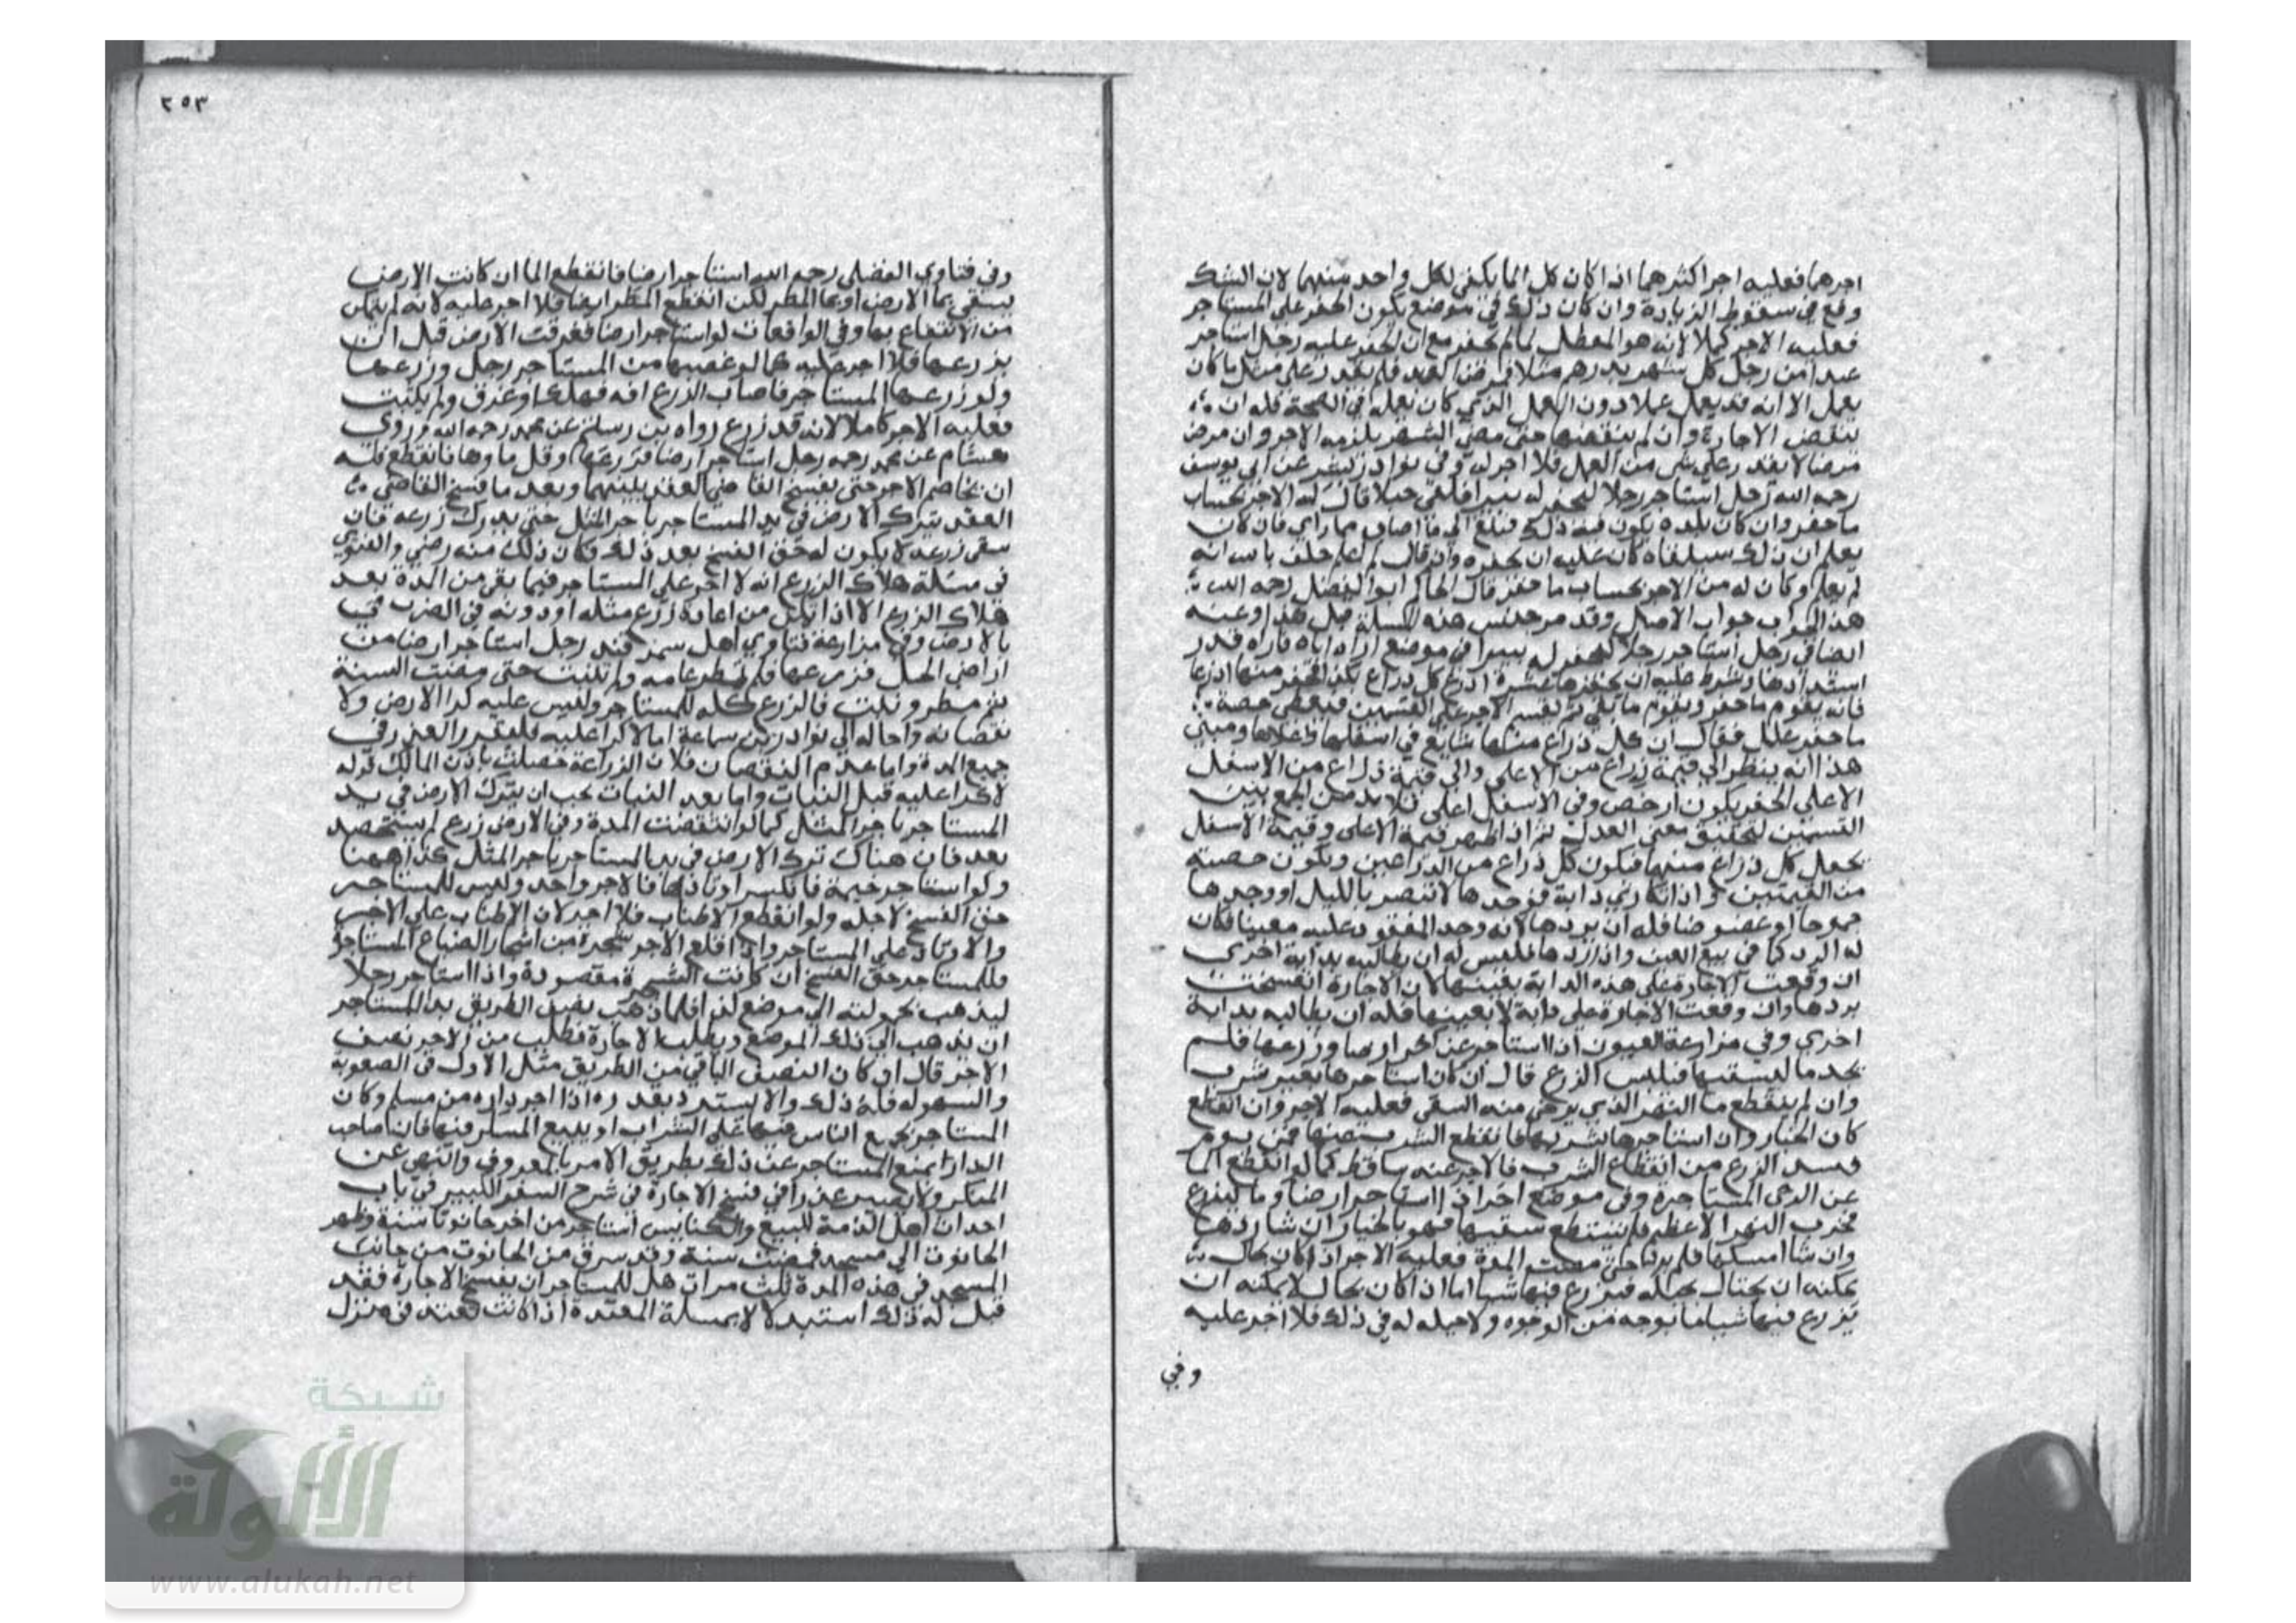 اجرهما فعليه اجر اكثرهما اذا كان كل الما يكفي لكل واحد منهما لان الشك
وقع في سقوط الزيادة وان كان ذلك في موضع يكون الحفر على المستاجر
فعليه الاجر كملا لانه هو المعطل لما لم يحفر مع ان الحفر عليه رجل استاجر
عبدا من رجل كل شهر بدرهم مثلا فمرض العبد فلم يقدر على مثل ما كان
يعمل الا انه قد يعمل عملا دون العمل الذي كان يعمله في الصحة فله ان
ينقض الاجارة وان لم ينقضها حتى مضى الشهر يلزمه الاجر وان مرض
مرضا لا يقدر على شي من العمل فلا اجر له وفي نوادر بشر عن ابي يوسف
رحمه الله رجل استاجر رجلا ليحفر له بيرا فلقي جبلا قال له الاجر بحساب
ما حفر وان كان بلده يكون فيه ذلك فبلغ الى ما اصاب مما راي فان كان
يعلم ان ذلك سيلقاه كان عليه ان يحفره وان قال لم اعلم حلف بالله انه
لم يعلم وكان له من الاجر بحساب ما حفر قال الحاكم ابو الفضل رحمه الله
هذا الجواب جواب الاصل وقد مر جنس هذه المسلة قبل هذا وعنه
ايضا في رجل استاجر رجلا ليحفر له بيرا في موضع اراه اياه فاراه قدر
استدارتها وشرط عليه ان يحفرها عشرة اذرع كل ذراع بكذا فحفر منها اذرعا
فانه يقوم ما حفر ويقوم ما بقي ثم يقسم الاجر على القسمين فيعطي حصة
ما حفر فقال ان كل ذراع منها شايع في اسفلها واعلاها ومبنى
هذا انه ينظر الى قيمة ذراع من الاعلى والى قيمة ذراع من الاسفل
الاعلى الحفر يكون ارخص وفي الاسفل اعلى فلا بد من الجمع بين
القسمين لتحقيق معنى العدل ثم اذا ظهر قيمة الاعلى وقيمة الاسفل
يجعل كل ذراع منها فيكون كل ذراع من الذراعين ويكون حصته
من القيمتين واذا تكاري دابة فوجدها لا تبصر بالليل او وجدها
جموحا او عضوضا فله ان يردها لانه وجد المعقود عليه معيبا فكان
له الرد كما في بيع العين واذا ردها فليس له ان يطالبه بدابة اخرى
ان وقعت الاجارة على هذه الدابة بعينها لان الاجارة انفسخت
بردها وان وقعت الاجارة على دابة لا بعينها فله ان يطالبه بدابة
اخري وفي مزارعة العيون اذا استاجر من اخر ارضا وزرعها فلم
يجد ما ليسقيها فيبس الزرع قال ان كان استاجرها بغير شرب
وان لم ينقطع ما النهر الذي يرجى منه السقي فعليه الاجر وان انقطع
كان الخيار وان استاجرها بشربها فانقطع الشرب عنها فمن يوم
فسد الزرع من انقطاع الشرب فالاجر عنه ساقط كما لو انقطع الما
عن الرحى المستاجرة وفي موضع اخر اذا استاجر ارضا وما ليزرع
فخرب النهر الاعظم فلم يستطع سقيها فهو بالخيار ان شا ردها
وان شا امسكها فلم يردها حتى مضت المدة فعليه الاجر اذا كان بحال
يمكنه ان يحتال بحيلة فيزرع فيها شيا اما اذا كان بحال لا يمكنه ان
يزرع فيها شيا ما بوجه من الوجوه ولا حيلة له في ذلك فلا اجر عليه
وفي
٢٥٣
وفي فتاوي الفضلي رحمه الله استاجر ارضا فانقطع الما ان كانت الارض
يسقى بما الارض او بما المطر لكن انقطع المطر ايضا فلا اجر عليه لانه لم يتمكن
من الانتفاع بها وفي الواقعات لو استاجر ارضا فغرقت الارض قبل ان
يزرعها فلا اجر عليه كما لو غصبها من المستاجر رجل وزرعها
ولو زرعها المستاجر فاصاب الزرع افه فهلك او غرق ولم ينبت
فعليه الاجر كاملا لانه قد زرع رواه بن رستم عن محمد رحمه الله وروى
هشام عن محمد رحمه رجل استاجر ارضا فزرعها وقل ماوها فانقطع فله
ان يخاصم الاجر حتى يفسخ القاضي العقد بينهما وبعد ما فسخ القاضي
العقد يترك الارض في يد المستاجر باجر المثل حتى يدرك زرعه فان
سقى زرعه لا يكون له حق الفسخ بعد ذلك فكان ذلك منه رضي والفتوى
في مسئلة هلاك الزرع انه لا اجر على المستاجر فيما بقي من المدة بعد
هلاك الزرع الا اذا تمكن من اعادة زرع مثله او دونه في الضرب في
بالارض وفي مزارعة فتاوي اهل سمرقند رجل استاجر ارضا من
اراضي الجبل فزرعها فلم تمطر عامه ولم تنبت حتى مضت السنة
ثم مطر ونبت فالزرع كله للمستاجر وليس عليه كرا الارض ولا
نقصانه واحاله الى نوادر بن سماعة اما الاكرا عليه فلعقد رالعذر في
جميع المدة واما عدم النقصان فلان الزراعة حصلت باذن المالك قوله
لا كرا عليه قبل النبات واما بعد النبات يجب ان يترك الارض في يد
المستاجر باجر المثل كما لو انقضت المدة وفي الارض زرع لم يستحصد
بعد فان هناك تترك الارض في يد المستاجر باجر المثل كذا ههنا
ولو استاجر خيمة فانكسر اوتادها فالاجر واحد وليس للمستاجر
حق الفسخ لاجله ولو انقطع الاطناب فلا اجر لان الاطناب على الاجر
والاوتاد على المستاجر واذا قلع الاجر شجرة من اشجار الضياع المستاجرة
فللمستاجر حق الفسخ ان كانت الشجرة مقصودة واذا استاجر رجلا
ليذهب بحمولته الى موضع كذا فلما ذهب نصف الطريق بدا للمستاجر
ان يذهب الى ذلك الموضع ويطلب الاجارة فطلب من الاجر نصف
الاجر قال ان كان النصف الباقي من الطريق مثل الاول في الصعوبة
والسهوله فله ذلك والا يسترد بقدره اذا اجر داره من مسلم وكان
المستاجر يجمع الناس فيها على الشراب او يبيع المسكر فيها فان صاحب
الدار يمنع المستاجر عن ذلك بطريق الامر بالمعروف والنهي عن
المنكر ولا يصير عذرا في فسخ الاجارة في شرح السير الكبير في باب
احداث اهل الذمة البيع والكنايس استاجر من اخر حانوتا سنة وظهر
الحانوت الى مسجد فمضت سنة وقد سرق من الحانوت من جانب
المسجد في هذه المدة ثلث مرات هل للمستاجر ان يفسخ الاجارة فقد
قيل له ذلك استدلالا بمسلة المعتدة اذا كانت تعتد في منزل
شبكة
الألوكة
www.alukah.net